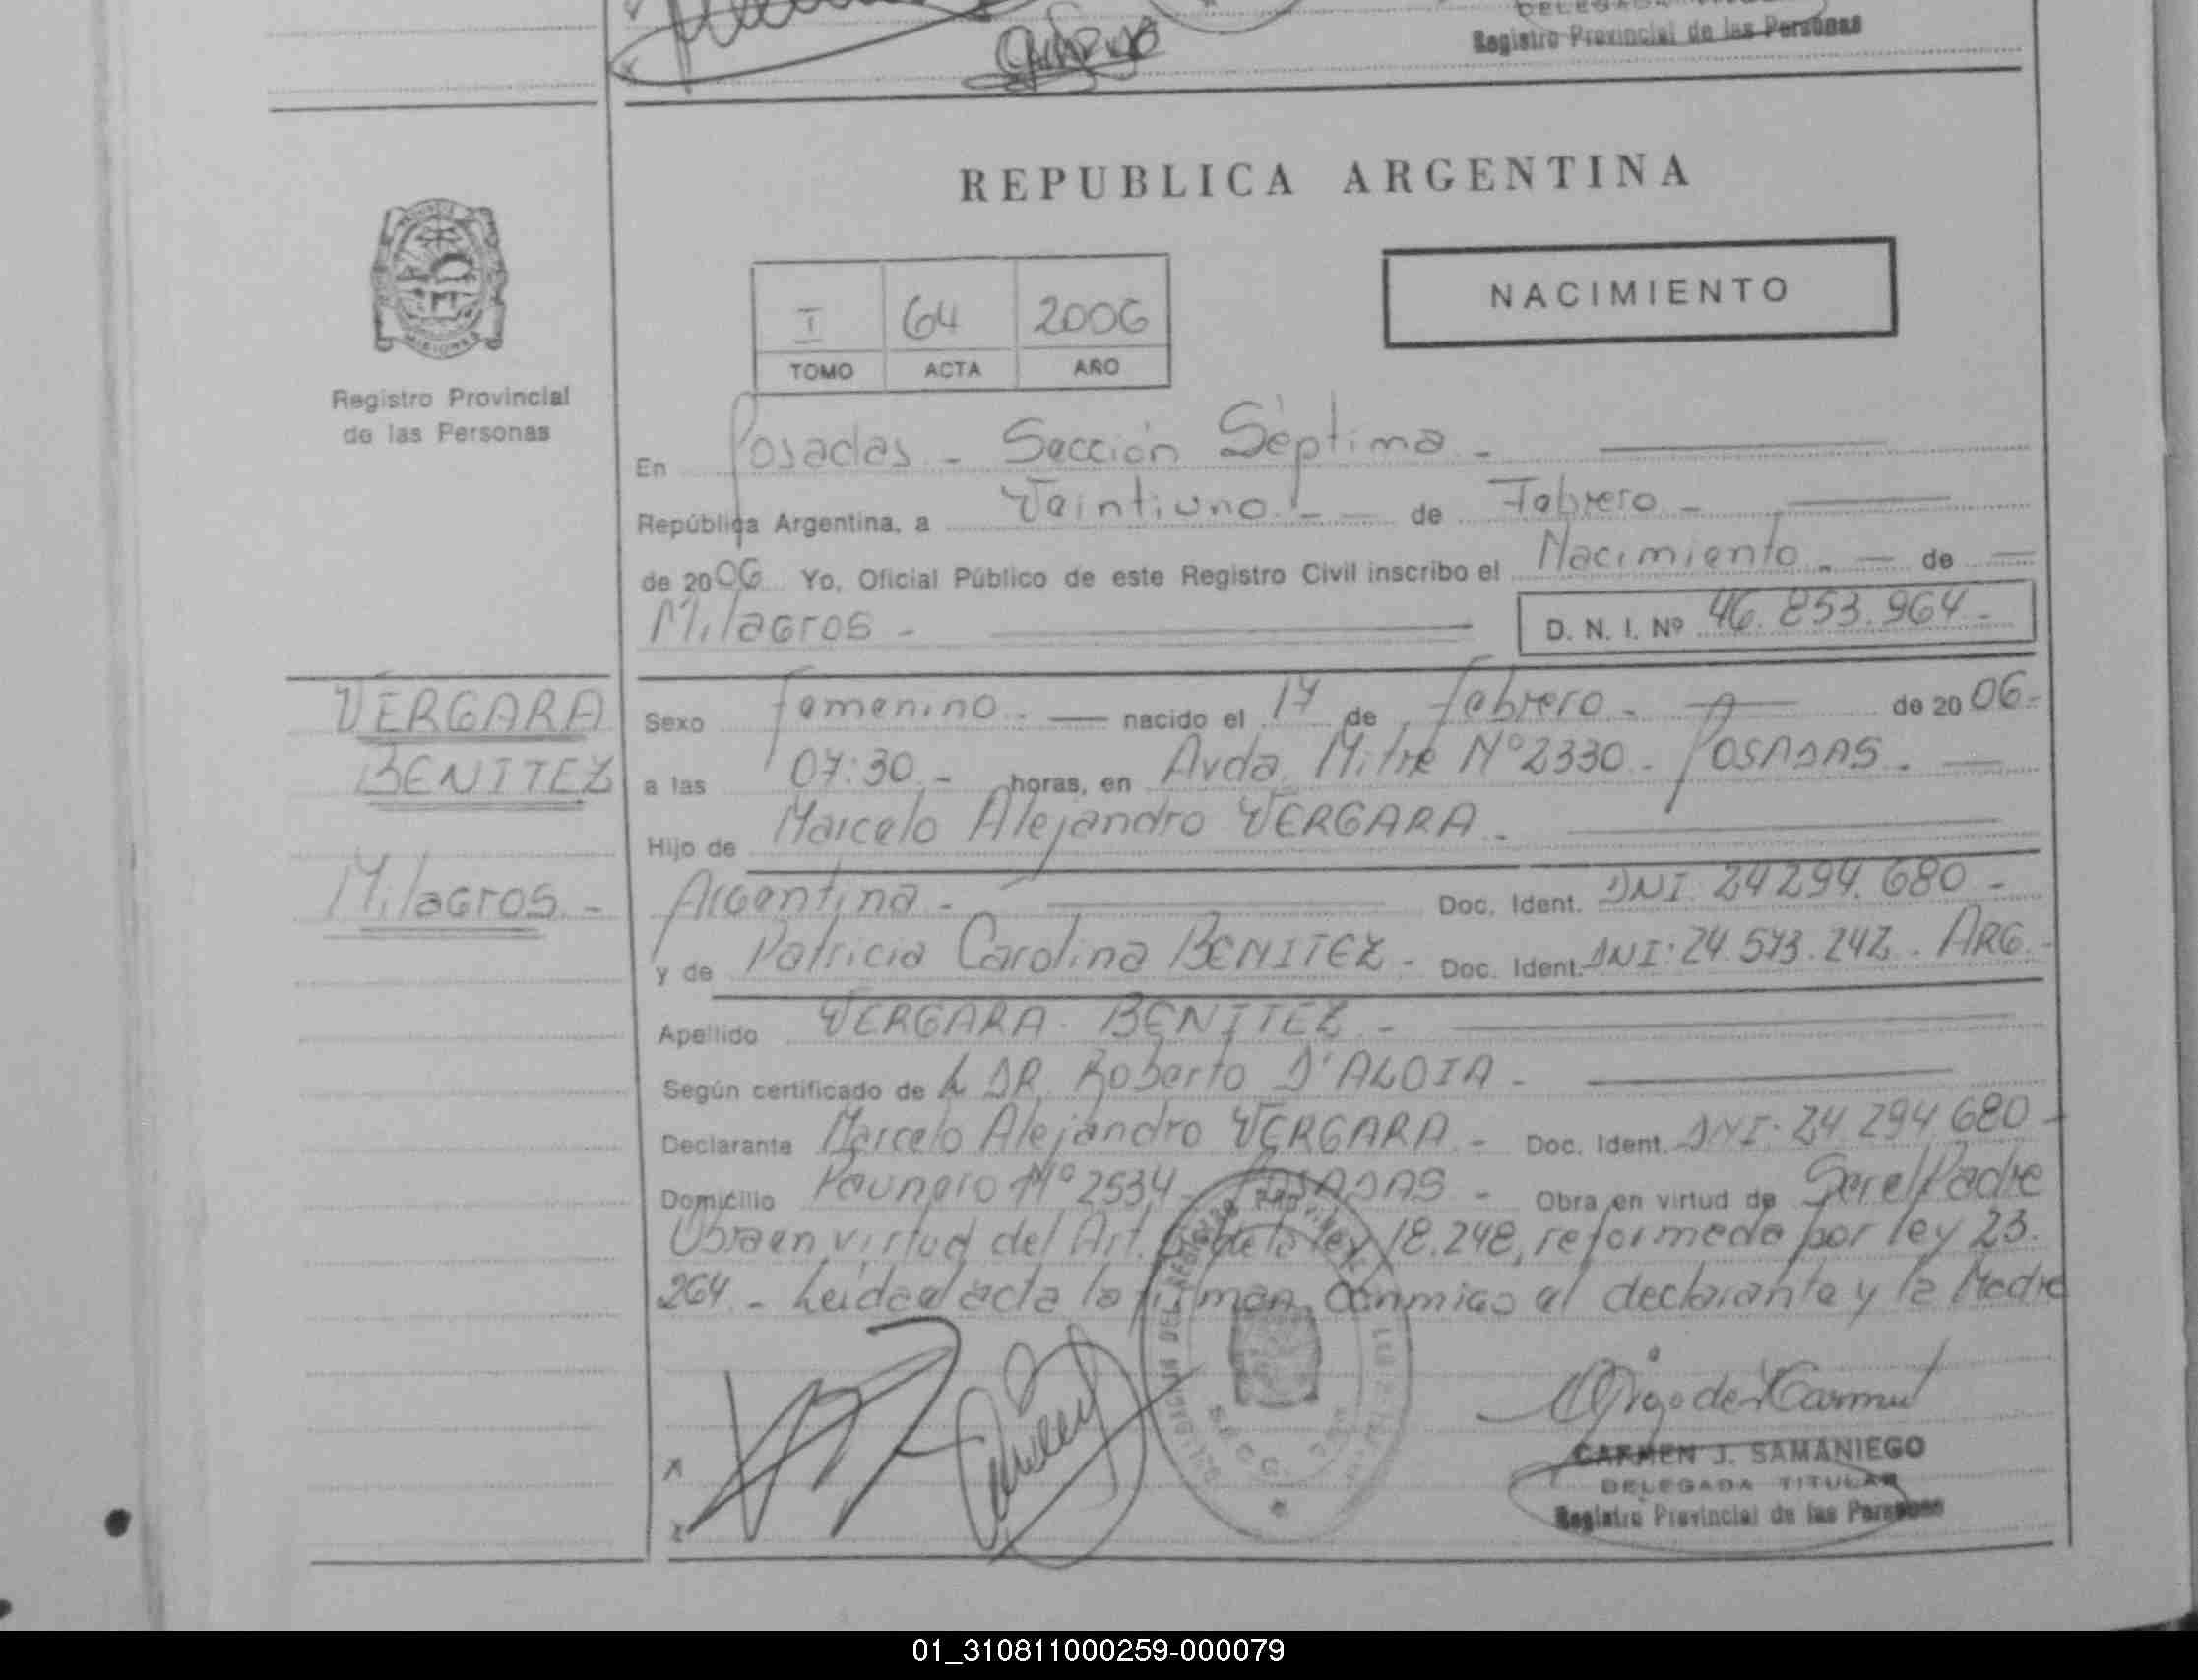 Registro Provincial de las Personas
REPUBLICA ARGENTINA
NACIMIENTO
I 64 2006
TOMO ACTA AÑO
MISIONES
Registro Provincial
de las Personas
En Posadas - Sección Séptima -
República Argentina, a Veintiuno - - de Febrero -
de 2006 Yo, Oficial Público de este Registro Civil inscribo el Nacimiento - - de
Milagros -
D. N. I. Nº 46.853.964-
VERGARA
BENITEZ
Milagros -
Sexo Femenino - nacido el 17 de febrero - de 2006-
a las 07:30 - horas, en Avda. Mitre Nº 2330 - POSADAS. -
Hijo de Marcelo Alejandro VERGARA -
Argentina - Doc. Ident. DNI. 24294.680 -
y de Patricia Carolina BENITEZ - Doc. Ident. DNI: 24.573.242 - ARG. -
Apellido VERGARA BENITEZ -
Según certificado de L DR. Roberto D'ALOIA -
Declarante Marcelo Alejandro VERGARA - Doc. Ident. DNI: 24 294 680 -
Domicilio Paunero Nº 2534 - POSADAS - Obra en virtud de Ser el Padre
Obra en virtud del Art. de la ley 18.248, reformada por ley 23.
264 - Leida el acta la firman conmigo el declarante y la Madre
CARMEN J. SAMANIEGO
DELEGADA TITULAR
Registro Provincial de las Personas
01_310811000259-000079